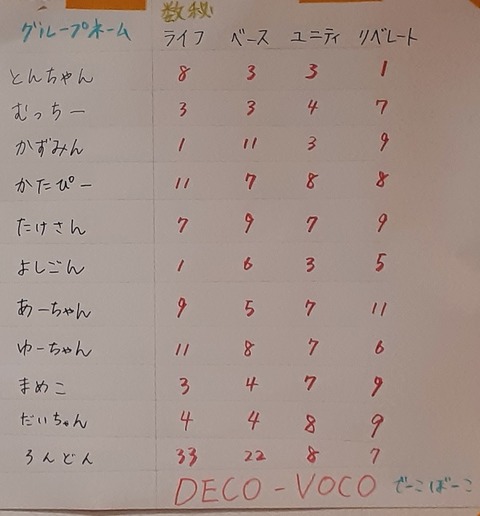 数秘
グループネーム ライフ ベース ユニティ リベレート
とんちゃん 8 3 3 1
むっちー 3 3 4 7
かずみん 1 11 3 9
かたぴー 11 7 8 8
たけさん 7 9 7 9
よしごん 1 6 3 5
あーちゃん 9 5 7 11
ゆーちゃん 11 8 7 6
まめこ 3 4 7 9
だいちゃん 4 4 8 9
ろんどん 33 22 8 7
DECO-VOCO でーこぼーこ